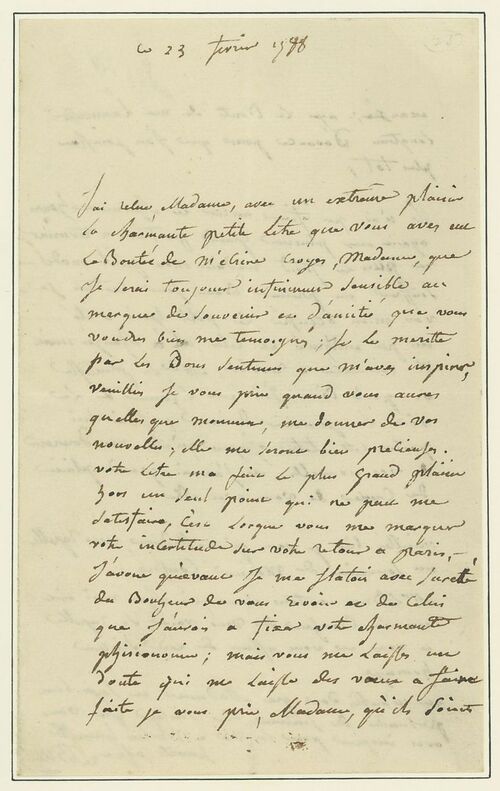 ce 23 fevrier 1788
J'ai relue, Madame, avec un extreme plaisir
la charmante petite Letre que vous aves eu
la Bontée de m'ecrire croyes, Madame, que
Je serai toujours infiniment sensible au
marque de souvenir et d'amitié que vous
voudres bien me temoigné; Je le meritte
par les Bons sentimens que m'aves inspirer,
veuilliés Je vous prie quand vous aures
quelleque momens, me donner de vos
nouvelles; elle me seront bien precieuses.
votre Letre ma fait le plus grand plaisir
hors un seul point qui ne peut me
satisfaire, C'est Lorque vous me marquer
votre incertitude sur votre retour a paris,
J'avoue qu'avant Je me flatois avec sureté
du Bonheur de vous revoir et de Celui
que J'aurois a fixer votre charmante
phisionomie; mais vous me Laissés un
doute qui me Laisse des vœux a faire
faite je vous prie, Madame, qu'ils soient